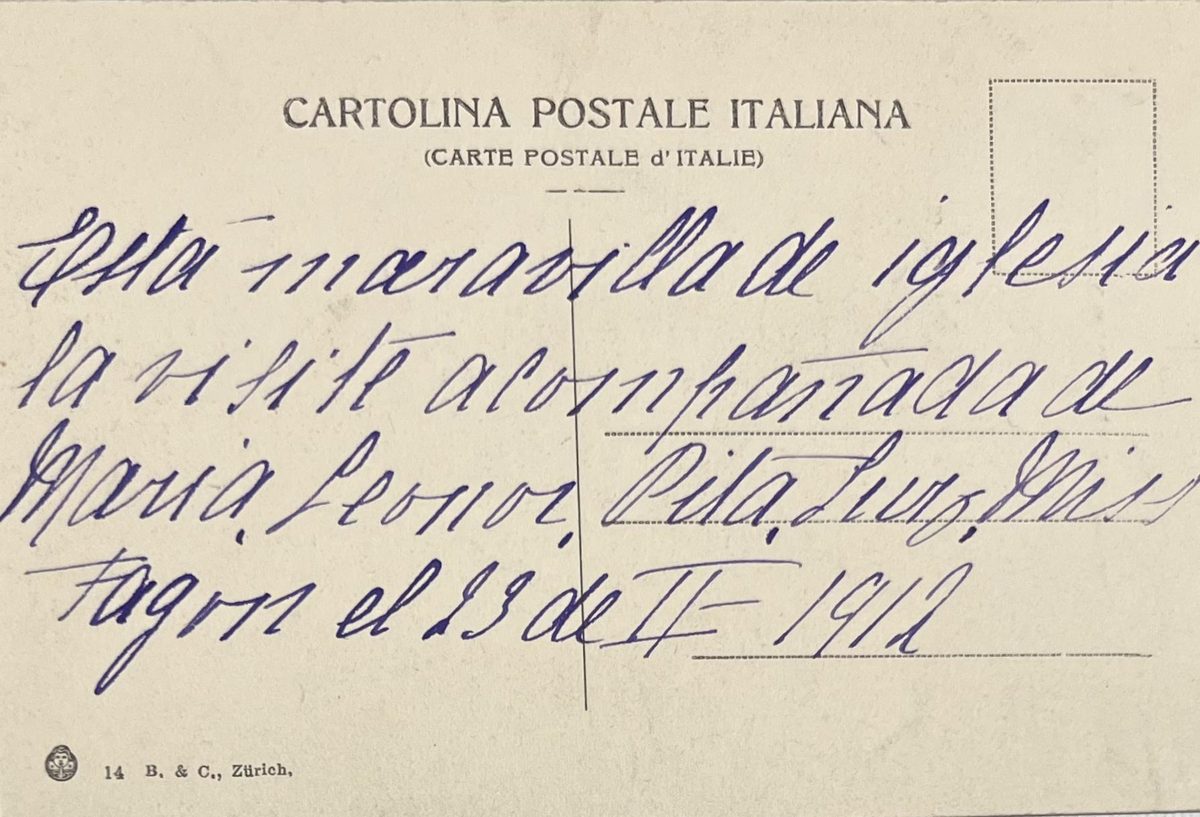 CARTOLINA POSTALE ITALIANA
(CARTE POSTALE d'ITALIE)
Esta maravilla de iglesia
la visité acompañada de
Maria, Leonor, Pita, Luz, Miss
Fagon el 23 de II - 1912
14 B. & C., Zürich,